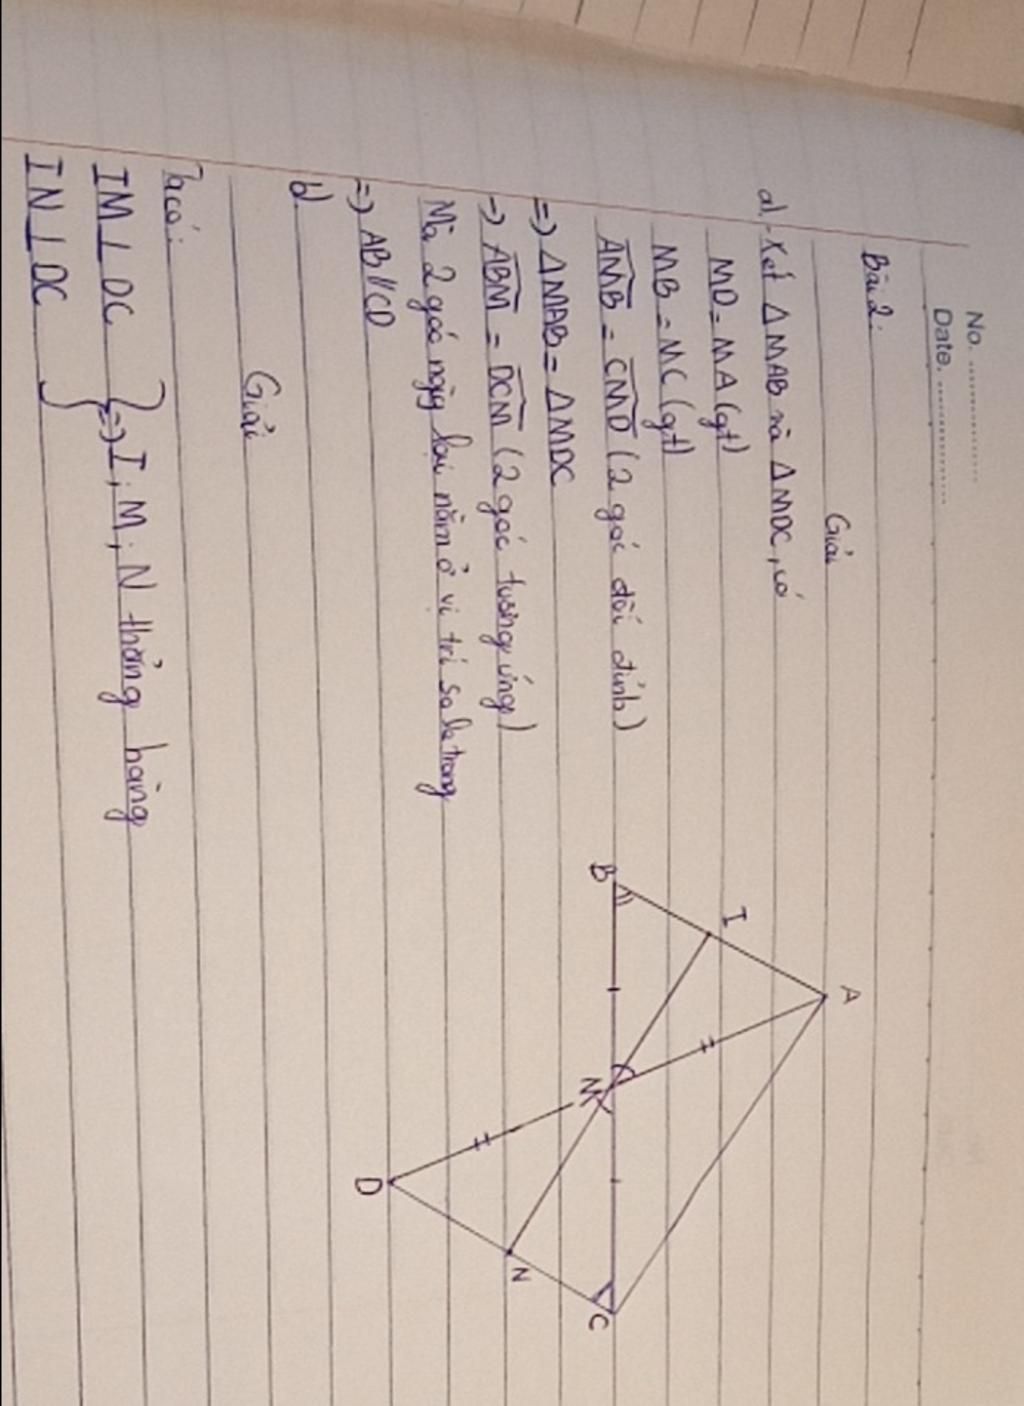 No. ....................
Date. ....................
Bài 2:
Giải
a), Xét Δ MAB và Δ MDC, có
MD = MA (gt)
MB = MC (gt)
AMB = CMD (2 góc đối đỉnh)
=> Δ MAB = Δ MDC
=> ABM = DCM (2 góc tương ứng)
Mà 2 góc này lại nằm ở vị trí so le trong
=> AB // CD
b)
Giải
Ta có:
IM ⊥ DC } => I; M; N thẳng hàng
IN ⊥ DC
A
I
B
M
C
N
D